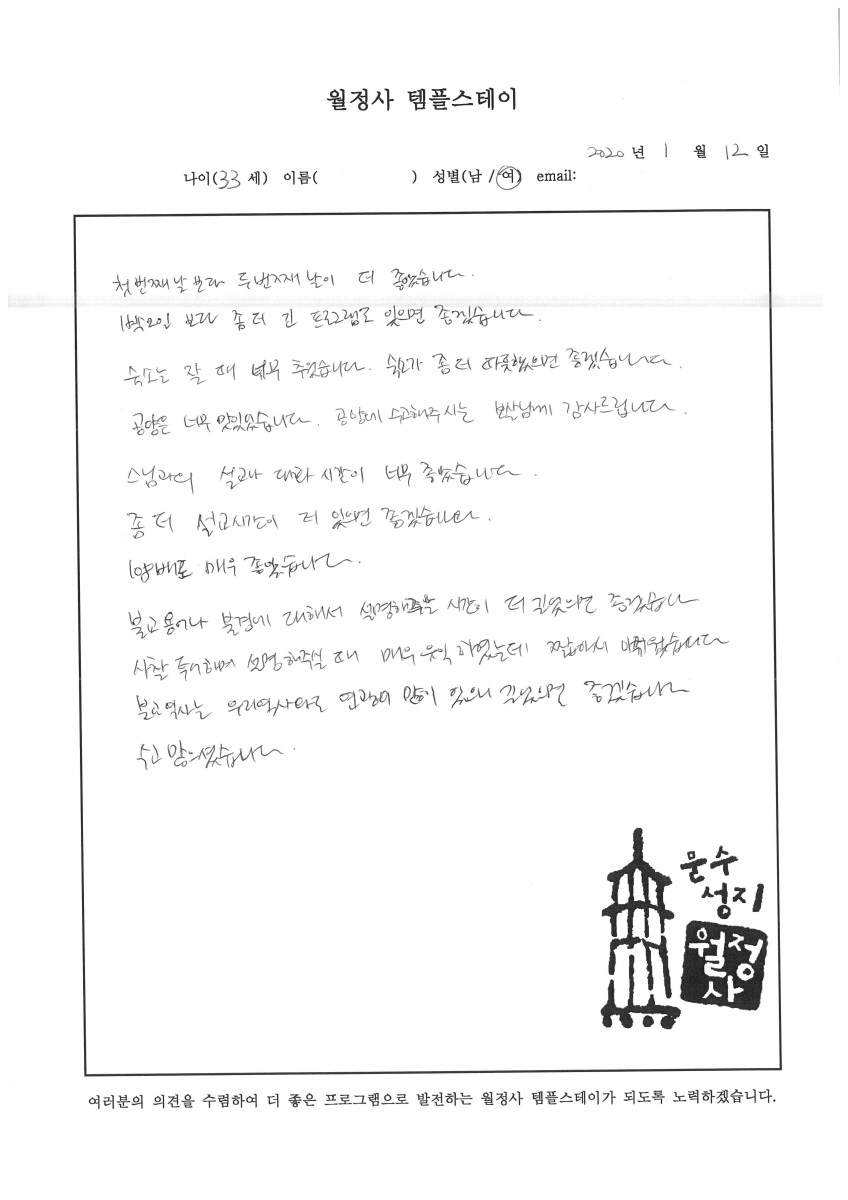 월정사 템플스테이
2020 년 1 월 12 일
나이(33 세) 이름( ) 성별(남 / 여) email:
첫번째날 보다 두번째 날이 더 좋았습니다.
1박2일 보다 좀 더 긴 프로그램도 있으면 좋겠습니다.
숙소는 잘 때 너무 추웠습니다. 숙소가 좀 더 따뜻했으면 좋겠습니다.
공양은 너무 맛있었습니다. 공양에 수고해주시는 보살님께 감사드립니다.
스님과의 설교나 대화 시간이 너무 좋았습니다.
좀 더 설교시간이 더 있으면 좋겠습니다.
매우 좋았습니다.
불교용어나 불경에 대해서 설명해주는 시간이 더 길었으면 좋겠습니다
사찰 설명해주실 때 매우 유익하였는데 짧아서 아쉬웠습니다
불교역사는 우리역사와도 연관이 많이 있으니 길었으면 좋겠습니다
수고 많으셨습니다.
문수
성지
월정
사
여러분의 의견을 수렴하여 더 좋은 프로그램으로 발전하는 월정사 템플스테이가 되도록 노력하겠습니다.